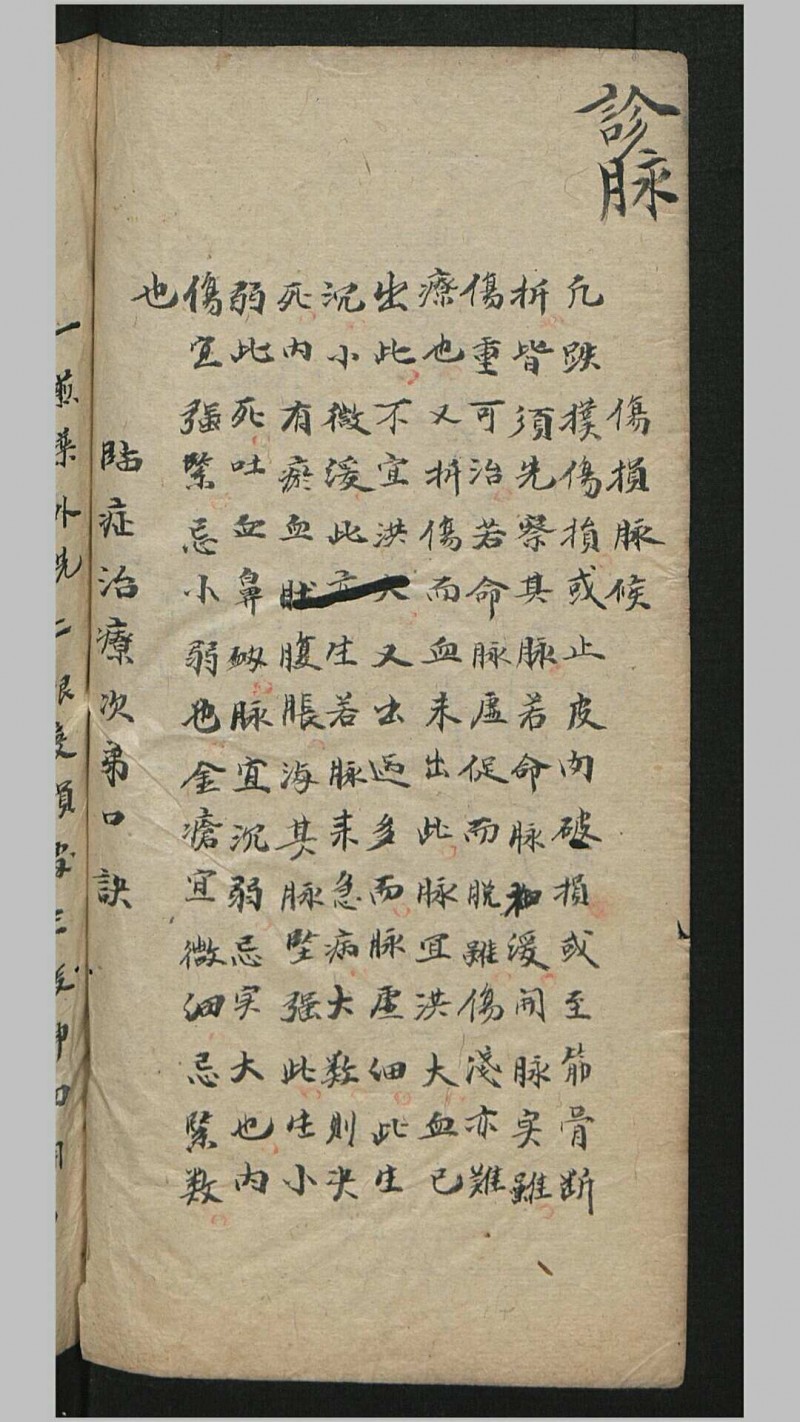 診脉
傷損脉候
凢跌撲傷損或止皮肉破損或至筋骨断
折皆須先察其脉若命脉和緩関脉实雖
傷重可治若命脉虚促而脱雖傷淺亦難
療也又折傷而血未出此脉宜洪大血已
出此不宜洪大又出過多而脉虚細此生
沉小微緩此亦生若脉来急病大数則决
死内有瘀血腹脹海其脉坚强此生小
弱此死吐血鼻衂脉宜沉弱忌实大也内
傷宜强緊忌小弱也金瘡宜微細忌緊数
也
臨症治療次弟口訣
一煎藥外洗二